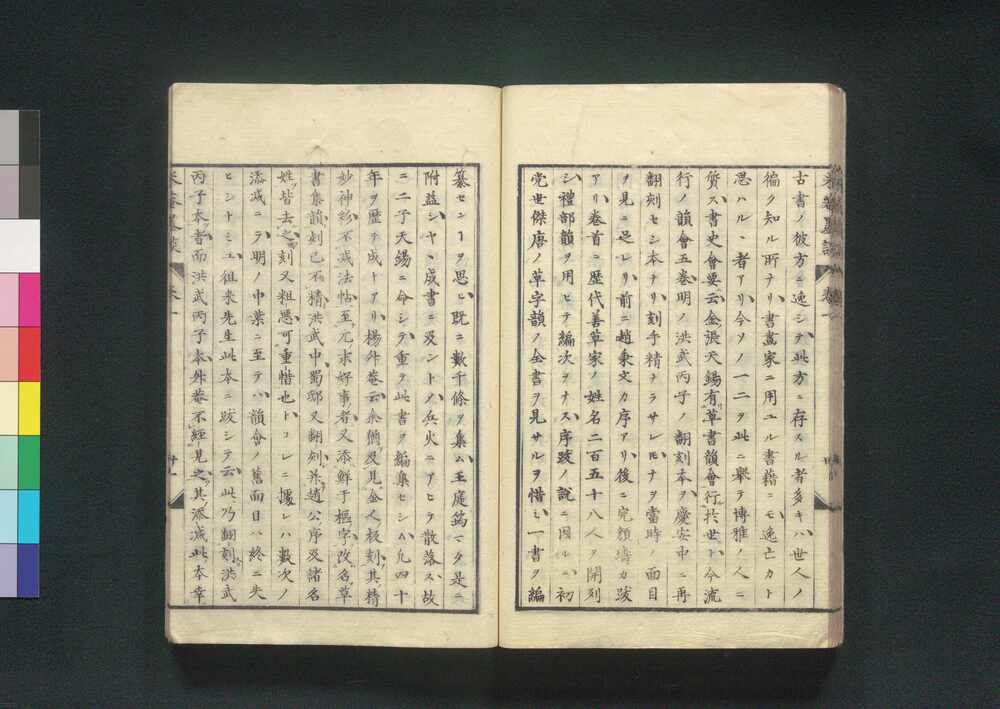 古書ノ彼方ニ逸シテ此方ニ存スル者多キハ世人ノ
徧ク知ル所ナリ書畫家ニ用ユル書籍ニモ逸亡カト
思ハルヽ者アリ今ソノ一二ヲ此ニ擧テ博雅ノ人ニ
質ス書史會要云金張天錫有草書韻會行於世ト今流
行ノ韻會五巻明ノ洪武丙子ノ翻刻本ヲ慶安中ニ再
翻刻セシ本ナリ刻手精ナラサレ𪜈ナヲ當時ノ面目
ヲ見ニ足レリ前ニ趙秉文カ序アリ後ニ完顔璹カ跋
アリ卷首ニ歴代善草家ノ姓名二百五十八人ヲ開列
シ禮部韻ヲ用ヒテ編次ヲナス序跋ノ説ニ因ルニ初
党世傑唐ノ草字韻ノ全書ヲ見サルヲ惜ミ一書ヲ編
纂センヿヲ思ヒ既ニ數千條ヲ集ム王庭筠マタ是ニ
附益シヤヽ成書ニ及ントノ兵火ニアヒテ散落ス故
ニ二子天錫ニ命シテ重テ此書ヲ編集セシム凢四十
年ヲ歴テ成トアリ楊升菴云余偶及見金人板刻其精
妙神彩不減法帖至元末好事者又添鮮于樞字改名草
書集韻刻已不精洪武中蜀邸又翻刻并趙公序及諸名
姓皆去之刻又粗惡可重惜也トコレニ據レハ數次ノ
添減ニテ明ノ中葉ニ至テハ韻會ノ舊面目ハ終ニ失
ヒシトミユ徂來先生此本ニ跋シテ云此乃翻刻洪武
丙子本者而洪武丙子本升菴不經見之其添減此本幸